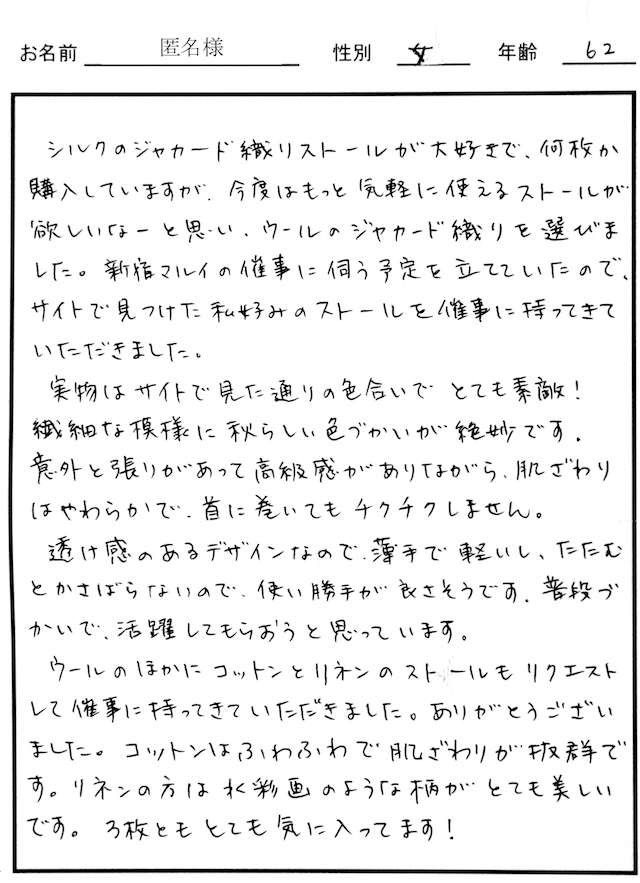 お名前 匿名様 性別 女 年齢 62
シルクのジャカード織リストールが大好きで、何枚か
購入していますが、今度はもっと気軽に使えるストールが
欲しいなーと思い、ウールのジャカード織りを選びま
した。新宿マルイの催事に伺う予定を立てていたので、
サイトで見つけた私好みのストールを催事に持ってきて
いただきました。
実物はサイトで見た通りの色合いでとても素敵!
繊細な模様に秋らしい色づかいが絶妙です。
意外と張りがあって高級感がありながら、肌ざわり
はやわらかで、首に巻いてもチクチクしません。
透け感のあるデザインなので、薄手で軽いし、たたむ
とかさばらないので、使い勝手が良さそうです。普段づ
かいで、活躍してもらおうと思っています。
ウールのほかにコットンとリネンのストールもリクエスト
して催事に持ってきていただきました。ありがとうござい
ました。コットンはふわふわで肌ざわりが抜群で
す。リネンの方は水彩画のような柄がとても美しい
です。3枚ともとても気に入ってます!